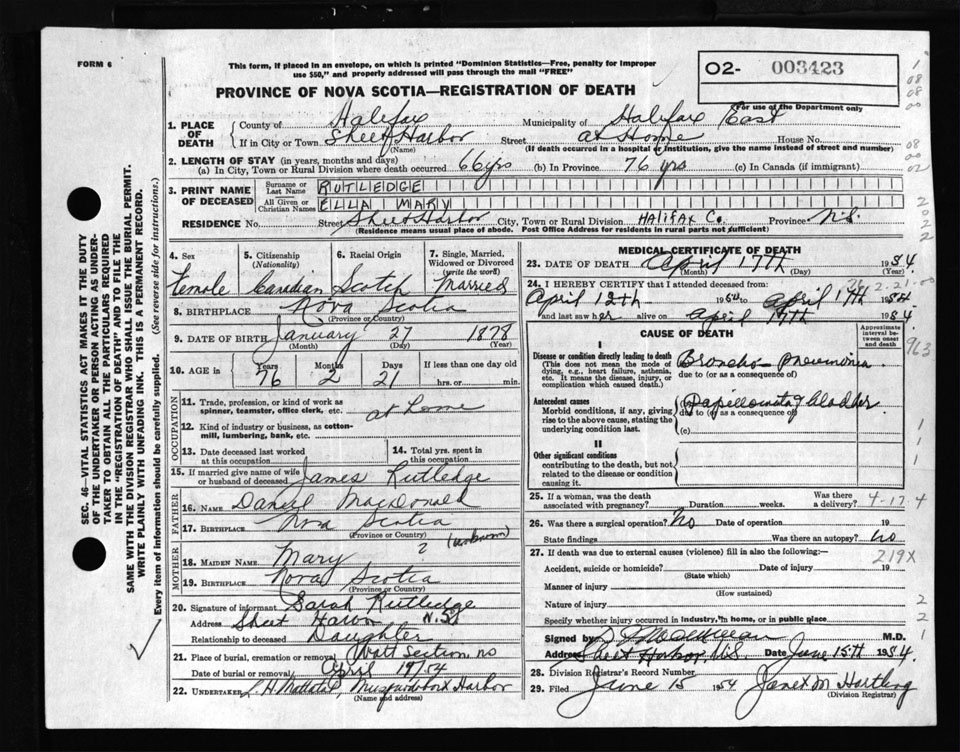 FORM 6
This form, if placed in an envelope, on which is printed "Dominion Statistics—Free, penalty for improper
use $50," and properly addressed will pass through the mail "FREE"
O2- 003423
For use of the Department only
PROVINCE OF NOVA SCOTIA—REGISTRATION OF DEATH
1. PLACE OF DEATH
County of Halifax Municipality of Halifax East
If in City or Town Sheet Harbor Street at Home House No.
(Name) (If death occurred in a hospital or institution, give the name instead of street and number)
2. LENGTH OF STAY (in years, months and days)
(a) In City, Town or Rural Division where death occurred 66 yrs (b) In Province 76 yrs (c) In Canada (if immigrant)
3. PRINT NAME OF DECEASED
Surname or Last Name RUTLEDGE
All Given or Christian Names ELLA MARY
RESIDENCE No. Street Sheet Harbor City, Town or Rural Division HALIFAX Co. Province N.S.
(Residence means usual place of abode. Post Office Address for residents in rural parts not sufficient)
4. Sex Female
5. Citizenship (Nationality) Canadian
6. Racial Origin Scotch
7. Single, Married, Widowed or Divorced (write the word) Married
8. BIRTHPLACE Nova Scotia
(Province or Country)
9. DATE OF BIRTH January 27 1878
(Month) (Day) (Year)
10. AGE in Years 76 Months 2 Days 21 If less than one day old
hrs. or min.
OCCUPATION
11. Trade, profession, or kind of work as
spinner, teamster, office clerk, etc. at home
12. Kind of industry or business, as cotton-
mill, lumbering, bank, etc.
13. Date deceased last worked
at this occupation
14. Total yrs. spent in
this occupation
15. If married give name of wife
or husband of deceased James Rutledge
FATHER
16. NAME Daniel MacDonald
17. BIRTHPLACE Nova Scotia
(Province or Country)
MOTHER
18. MAIDEN NAME Mary ? (unknown)
19. BIRTHPLACE Nova Scotia
(Province or Country)
20. Signature of informant Sarah Rutledge
Address Sheet Harbor N.S.
Relationship to deceased Daughter
21. Place of burial, cremation or removal Watt Section NS
Date of burial or removal April 19/54
22. UNDERTAKER Musquodoboit Harbor
(Name and address)
MEDICAL CERTIFICATE OF DEATH
23. DATE OF DEATH April 17th 1954
(Month) (Day) (Year)
24. I HEREBY CERTIFY that I attended deceased from:
April 12th 1954 to April 17th 1954
and last saw her alive on April 17th 1954.
CAUSE OF DEATH
Approximate interval between onset and death
I
Disease or condition directly leading to death
(This does not mean the mode of
dying, e.g., heart failure, asthenia,
etc. It means the disease, injury, or
complication which caused death.)
(a) Broncho-pneumonia
due to (or as a consequence of)
Antecedent causes
Morbid conditions, if any, giving
rise to the above cause, stating the
underlying condition last.
(b) Papillomata of bladder
due to (or as a consequence of)
(c)
II
Other significant conditions
contributing to the death, but not
related to the disease or condition
causing it.
25. If a woman, was the death
associated with pregnancy? Duration weeks. Was there
a delivery?
4-17-4
26. Was there a surgical operation? No Date of operation 19
State findings Was there an autopsy? No
27. If death was due to external causes (violence) fill in also the following:—
219X
Accident, suicide or homicide? Date of injury 19
(State which)
Manner of injury
(How sustained)
Nature of injury
Specify whether injury occurred in industry, in home, or in public place
Signed by M.D.
Address Sheet Harbor, N.S. Date June 15th 1954.
28. Division Registrar's Record Number
29. Filed June 15 1954 Janet M Hartling
(Division Registrar)
963
SEC. 46—VITAL STATISTICS ACT MAKES IT THE DUTY
OF THE UNDERTAKER OR PERSON ACTING AS UNDER-
TAKER TO OBTAIN ALL THE PARTICULARS REQUIRED
IN THE "REGISTRATION OF DEATH" AND TO FILE THE
SAME WITH THE DIVISION REGISTRAR WHO SHALL ISSUE THE BURIAL PERMIT.
WRITE PLAINLY WITH UNFADING INK. THIS IS A PERMANENT RECORD.
Every item of information should be carefully supplied. (See reverse side for instructions.)